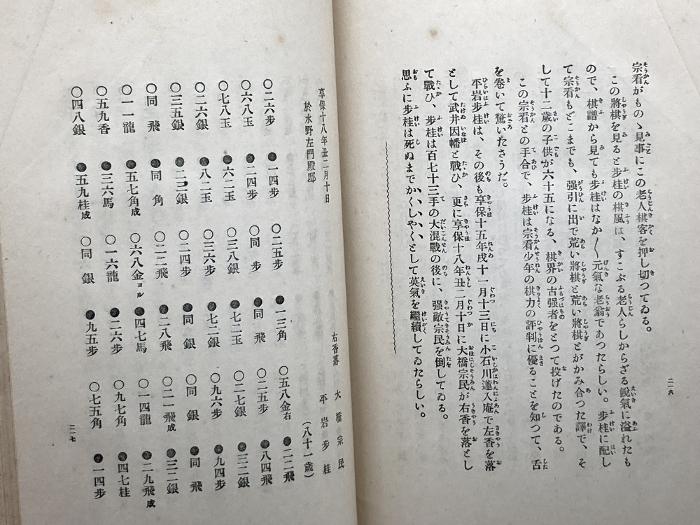 宗看がものゝ見事にこの老人棋客を押し切つてゐる。
この將棋を見ると步桂の棋風は、すこぶる老人らしからざる銳氣に溢れたも
ので、棋譜から見ても步桂はなか〱元氣な老翁であつたらしい。步桂に配し
て宗看もどこまでも、强引に出で荒い將棋と荒い將棋とがかみ合つた譯で、そ
して十二歲の子供が六十五になる、棋界の古强者をとつて投げたのである。
この宗看との手合で、步桂は宗看少年の棋力の評判に優ることを知つて、舌
を卷いて驚いたさうだ。
平岩步桂は、その後も享保十五年戌十一月十三日に小石川蓮入庵で左香を落
として武井因幡と戰ひ、更に享保十八年丑二月十日に大橋宗民が右香を落とし
て戰ひ、步桂は百七十三手の大混戰の後に、强敵宗民を倒してゐる。
思ふに步桂は死ぬまでかくしやくとして英氣を繼續してゐたらしい。
二一六
享保十八年丑二月十日
於水野左門殿邸
右香落 大橋宗民
平岩步桂
（八十一歲）
○二六步 ●一四步 ○二五步 ●一三角 ○五八金右 ●二二飛
○六八玉 ●二四步 ○同步 ●同飛 ○二五步 ●八四飛
○七八玉 ●六二玉 ○三八銀 ●七二玉 ○二七銀 ●三二銀
○二六銀 ●八二玉 ○三六步 ●七二銀 ○九六步 ●九四步
○三五銀 ●二三銀 ○二四步 ●同銀 ○同銀 ●同飛
○同飛 ●同角 ○二三飛 ●二八飛成 ○二一飛成 ●三二銀
○一一龍 ●五七角成 ○六八金ヨル ●四七馬 ○一四龍 ●二九飛成
○五九香 ●三六馬 ○一六龍 ●二六步 ○九七角 ●四七桂
○四八銀 ●五九桂成 ○同銀 ●九五步 ○七五角 ●一四步
二一七